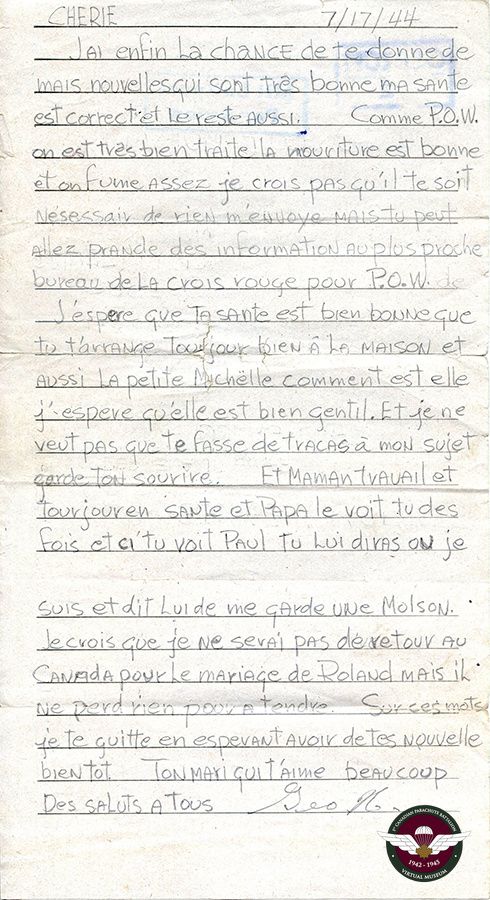 CHERIE 7/17/44
JAI enfin LA chANCE de te donne de
MAIS nouvelles qui sont très bonne ma sante
est correct et Le reste AUSSI. Comme P.O.W.
on est très bien traite LA nouriture est bonne
et on fume ASSEZ je crois pas qu'il te soit
Nesessair de rien m'envoye MAIS tu peut
Allez prande des information AU plus proche
bureau de LA crois rouge pour P.O.W. de
J'espere que TA sante est bien bonne que
tu t'arrange tourjour bien à LA MAISON et
AUSSI LA petite Michëlle comment est elle
j'espere qu'elle est bien gentil. Et je ne
veut pas que te fasse de tracas à mon sujet
garde TON sourire. Et Maman travail et
tourjour en SANTE et PAPA le voit tu des
fois et ci tu voit PAUL tu Lui diras ou je
suis et dit Lui de me garde UNE Molson.
Je crois que je ne serai pas de retour AU
CANADA pour Le mariage de Roland MAIS il
ne perd rien pour a tendre. Sur ces mots
je te quitte en esperant AVOIR de tes nouvelle
bientot TON MARI qui t'aime beaucoup
Des SALUTS A TOUS Geo N.
1ST CANADIAN PARACHUTE BATTALION
1942 - 1945
VIRTUAL MUSEUM